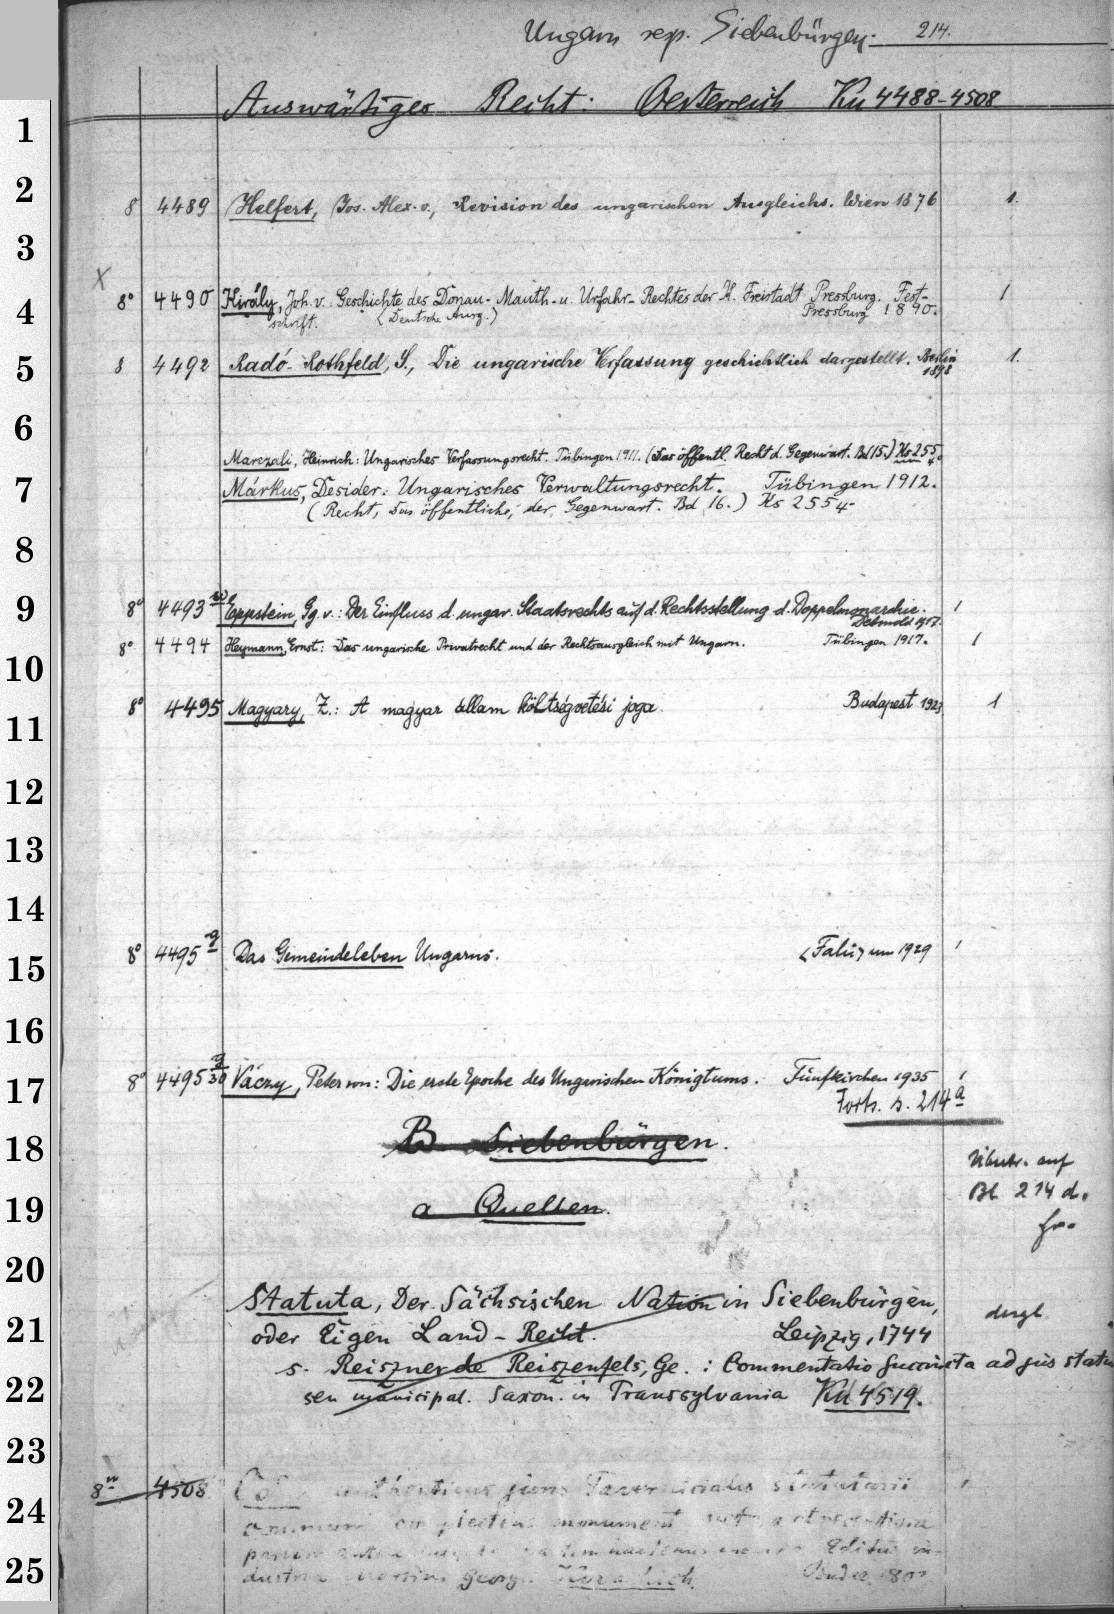 Ungarn resp. Siebenbürgen. 214.
Auswärtiges Recht: Oesterreich Ku 4488-4508
1
2
8 4489 Helfert, Jos. Alex. v., Revision des ungarischen Ausgleichs. Wien 1876 1.
3
X
8° 4490 Király, Joh. v. Geschichte des Donau- Mauth- u. Urfahr- Rechtes der K. Freistadt Pressburg. Fest- 1
4
schrift. (Deutsche Ausg.) Pressburg 1890.
5
8 4492 Radó- Rothfeld, S., Die ungarische Verfassung geschichtlich dargestellt. Berlin 1.
1898
6
Marczali, Heinrich: Ungarisches Verfassungsrecht. Tübingen 1911. (Das öffentl. Recht d. Gegenwart. Bd 15.) Ks 255
4.
7
Márkus, Desider: Ungarisches Verwaltungsrecht. Tübingen 1912.
(Recht, Das öffentliche, der Gegenwart. Bd 16.) Ks 2554
8
9
8° 4493 Eppstein, Gg. v.: Der Einfluss d. ungar. Staatsrechts auf d. Rechtsstellung d. Doppelmonarchie. 1
Detmold 1917.
8° 4494 Heymann, Ernst: Das ungarische Privatrecht und der Rechtsausgleich mit Ungarn. Tübingen 1917. 1
10
8° 4495 Magyary, Z.: A magyar állam költségvetési joga. Budapest 1923 1
11
12
13
14
8° 4495 g Das Gemeindeleben Ungarns. (Falu) um 1929 1
15
16
g
8° 4495 30 Váczy, Peter von: Die erste Epoche des Ungarischen Königtums. Fünfkirchen 1935 1
17
Forts. s. 214 a
18
B Siebenbürgen.
auf
19
a Quellen.
Bl 214 d.
20
Statuta, Der Sächsischen Nation in Siebenbürgen,
21
oder Eigen Land- Recht. Leipzig, 1744
dergl.
s. Reiszner de Reiszenfels, Ge.: Commentatio succincta ad jus statu
22
seu municipal. Saxon. in Transsylvania Ku 4519.
23
4508 authenticus Tavernicialis statutarii
24
monument
Editus in-
25
Georg.